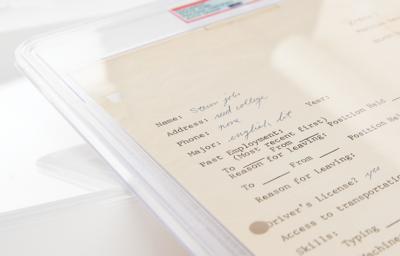 Name: Steven jobs
Address: reed college
Phone: none
Major: english lit Year:
Past Employment:
(Most recent first)
To From Position Held
Reason for leaving:
To From Position Held
Reason for leaving:
Driver's License? yes
Access to transportation
Skills: Typing